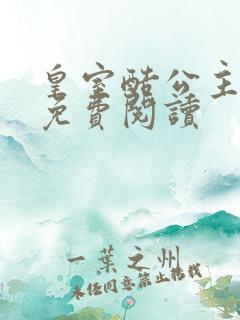 皇室酷公主
免費閱讀
一葉之州
未經同意禁止轉載